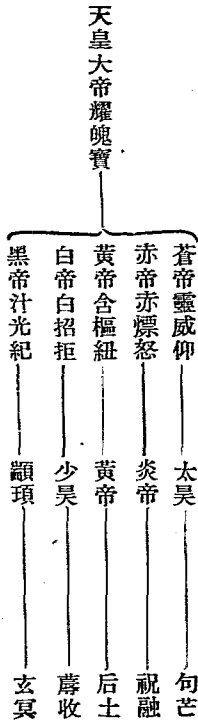 天皇大帝耀魄寶
蒼帝靈威仰 太昊 句芒
赤帝赤熛怒 炎帝 祝融
黃帝含樞紐 黃帝 后土
白帝白招拒 少昊 蓐收
黑帝汁光紀 顓頊 玄冥